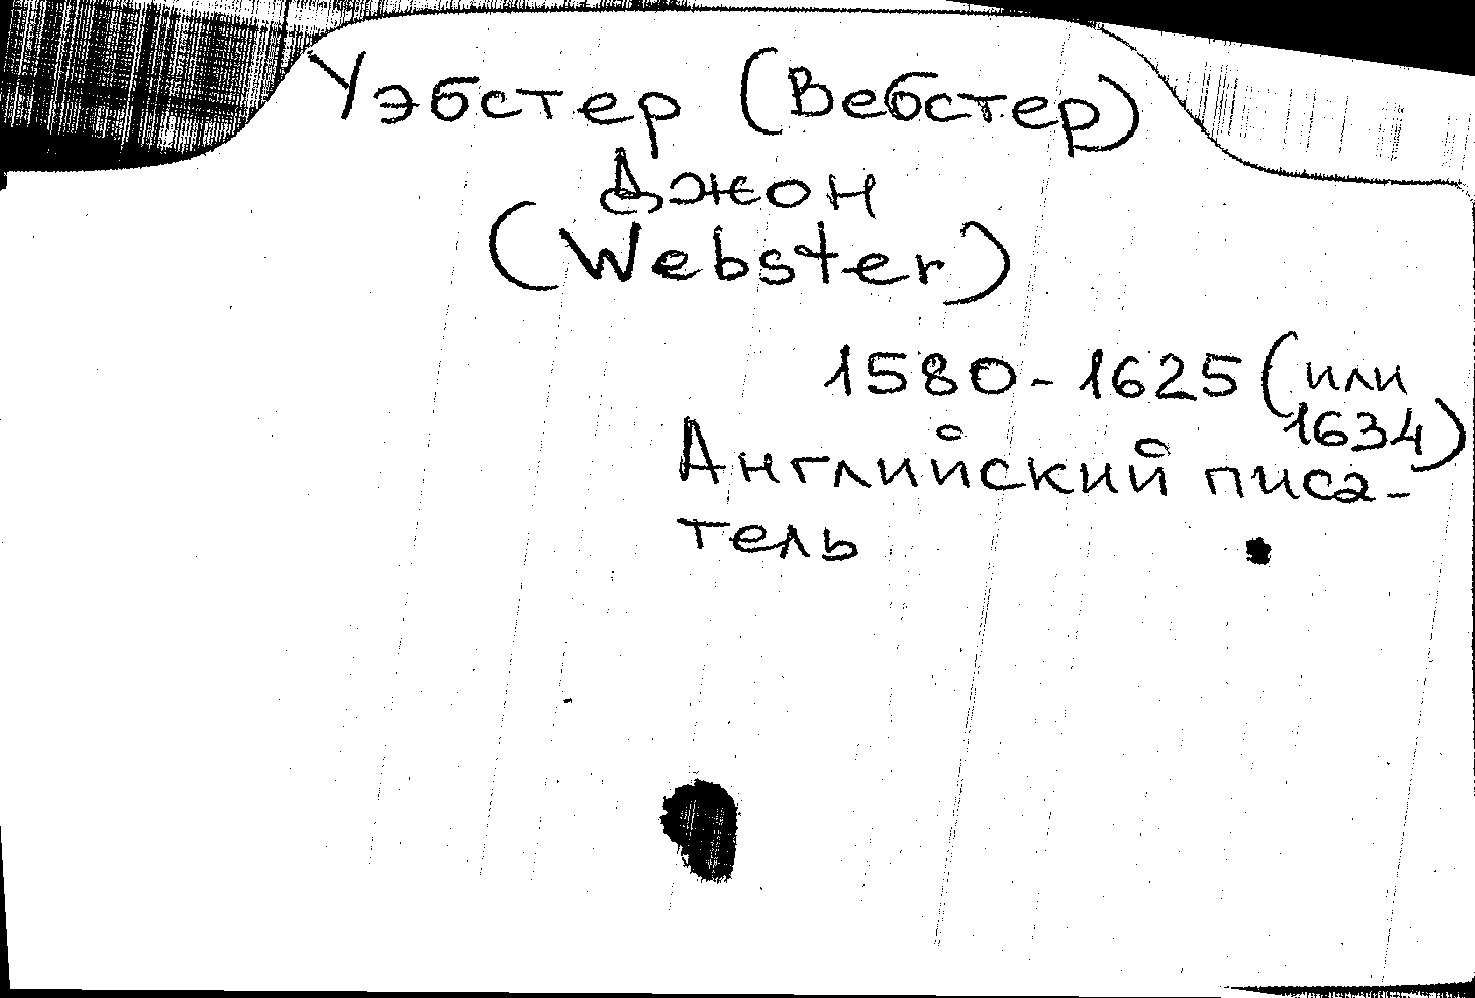 Уэбстер (Вебстер)
Джон
(Webster)
1580-1625 (или
1634)
Английский писа-
тель